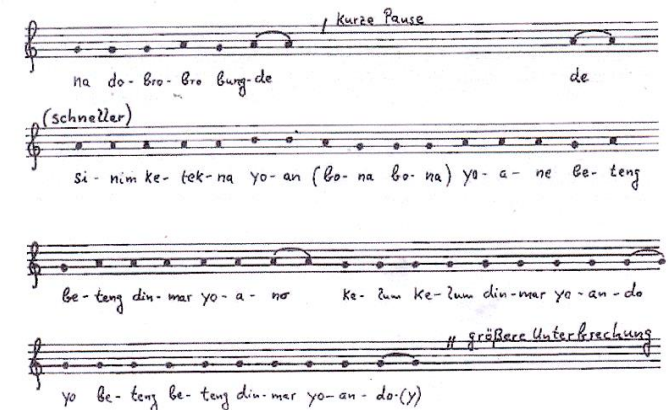 kurze Pause
na do-bro-bro bung-de de
(schneller)
si-nim ke-tek-na yo-an (bo-na bo-na) yo-a-ne be-teng
be-teng din-mar yo-a-no ke-lum ke-lum din-mar yo-an-do
größere Unterbrechung
yo be-teng be-teng din-mar yo-an-do-(y)